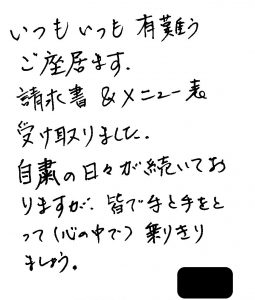 いつもいつも有難う
ご座居ます.
請求書&メニュー表
受け取りました.
自粛の日々が続いてお
りますが、皆で手と手をと
って(心の中で)乗りきり
ましょう。